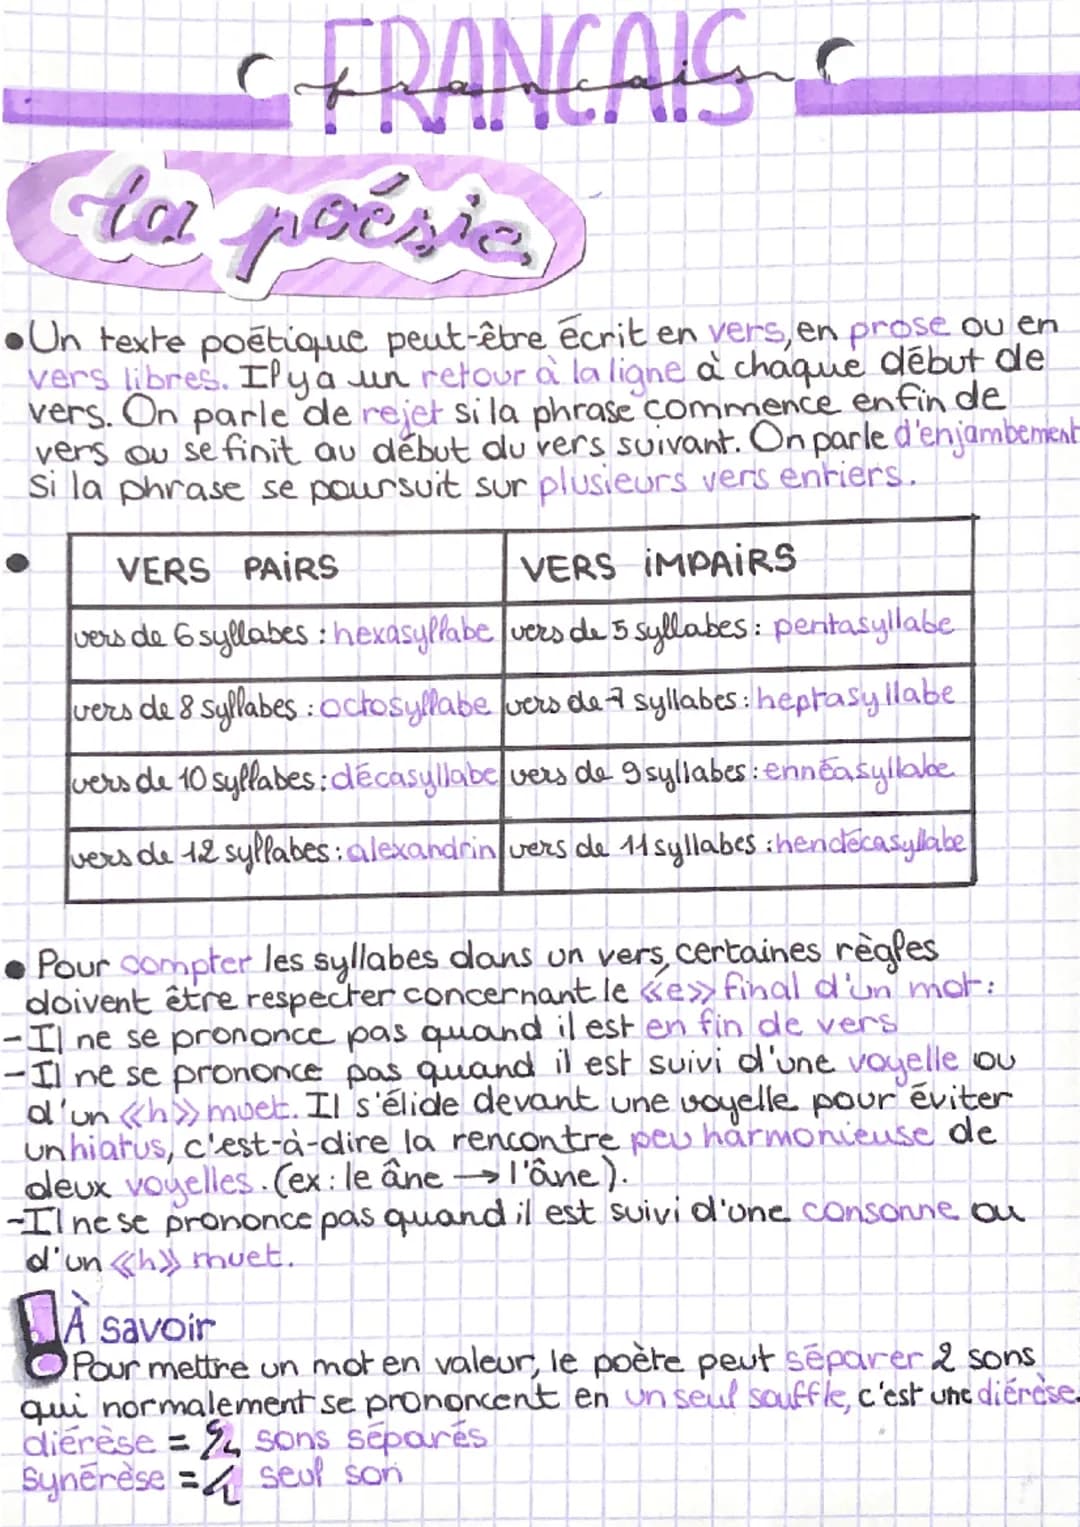 FRANCAIS
français
la poésie
•Un texte poétique peut-être écrit en vers, en prose ou en
vers libres. Il y a un retour à la ligne à chaque début de
vers. On parle de rejet si la phrase commence en fin de
vers ou se finit au début du vers suivant. On parle d'enjambement
si la phrase se poursuit sur plusieurs vers entiers.
• VERS PAIRS VERS IMPAIRS
vers de 6 syllabes : hexasyllabe vers de 5 syllabes : pentasyllabe
vers de 8 syllabes : octosyllabe vers de 7 syllabes : heptasyllabe
vers de 10 syllabes : décasyllabe vers de 9 syllabes : ennéasyllabe
vers de 12 syllabes : alexandrin vers de 11 syllabes : hendécasyllabe
• Pour compter les syllabes dans un vers, certaines règles
doivent être respecter concernant le «e» final d'un mot :
-Il ne se prononce pas quand il est en fin de vers
-Il ne se prononce pas quand il est suivi d'une voyelle ou
d'un «h» muet. Il s'élide devant une voyelle pour éviter
un hiatus, c'est-à-dire la rencontre peu harmonieuse de
deux voyelles. (ex : le âne → l'âne).
-Il ne se prononce pas quand il est suivi d'une consonne ou
d'un «h» muet.
! À savoir
Pour mettre un mot en valeur, le poète peut séparer 2 sons
qui normalement se prononcent en un seul souffle, c'est une diérèse.
diérèse = 2 sons séparés
synérèse = 1 seul son